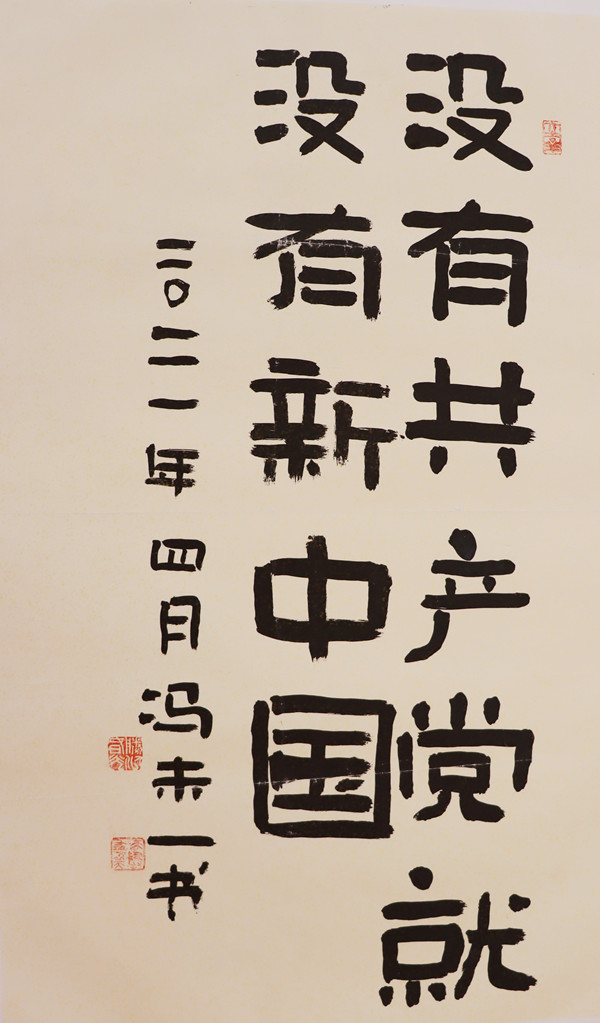 没有共产党就
没有新中国
二〇二一年四月冯未一书